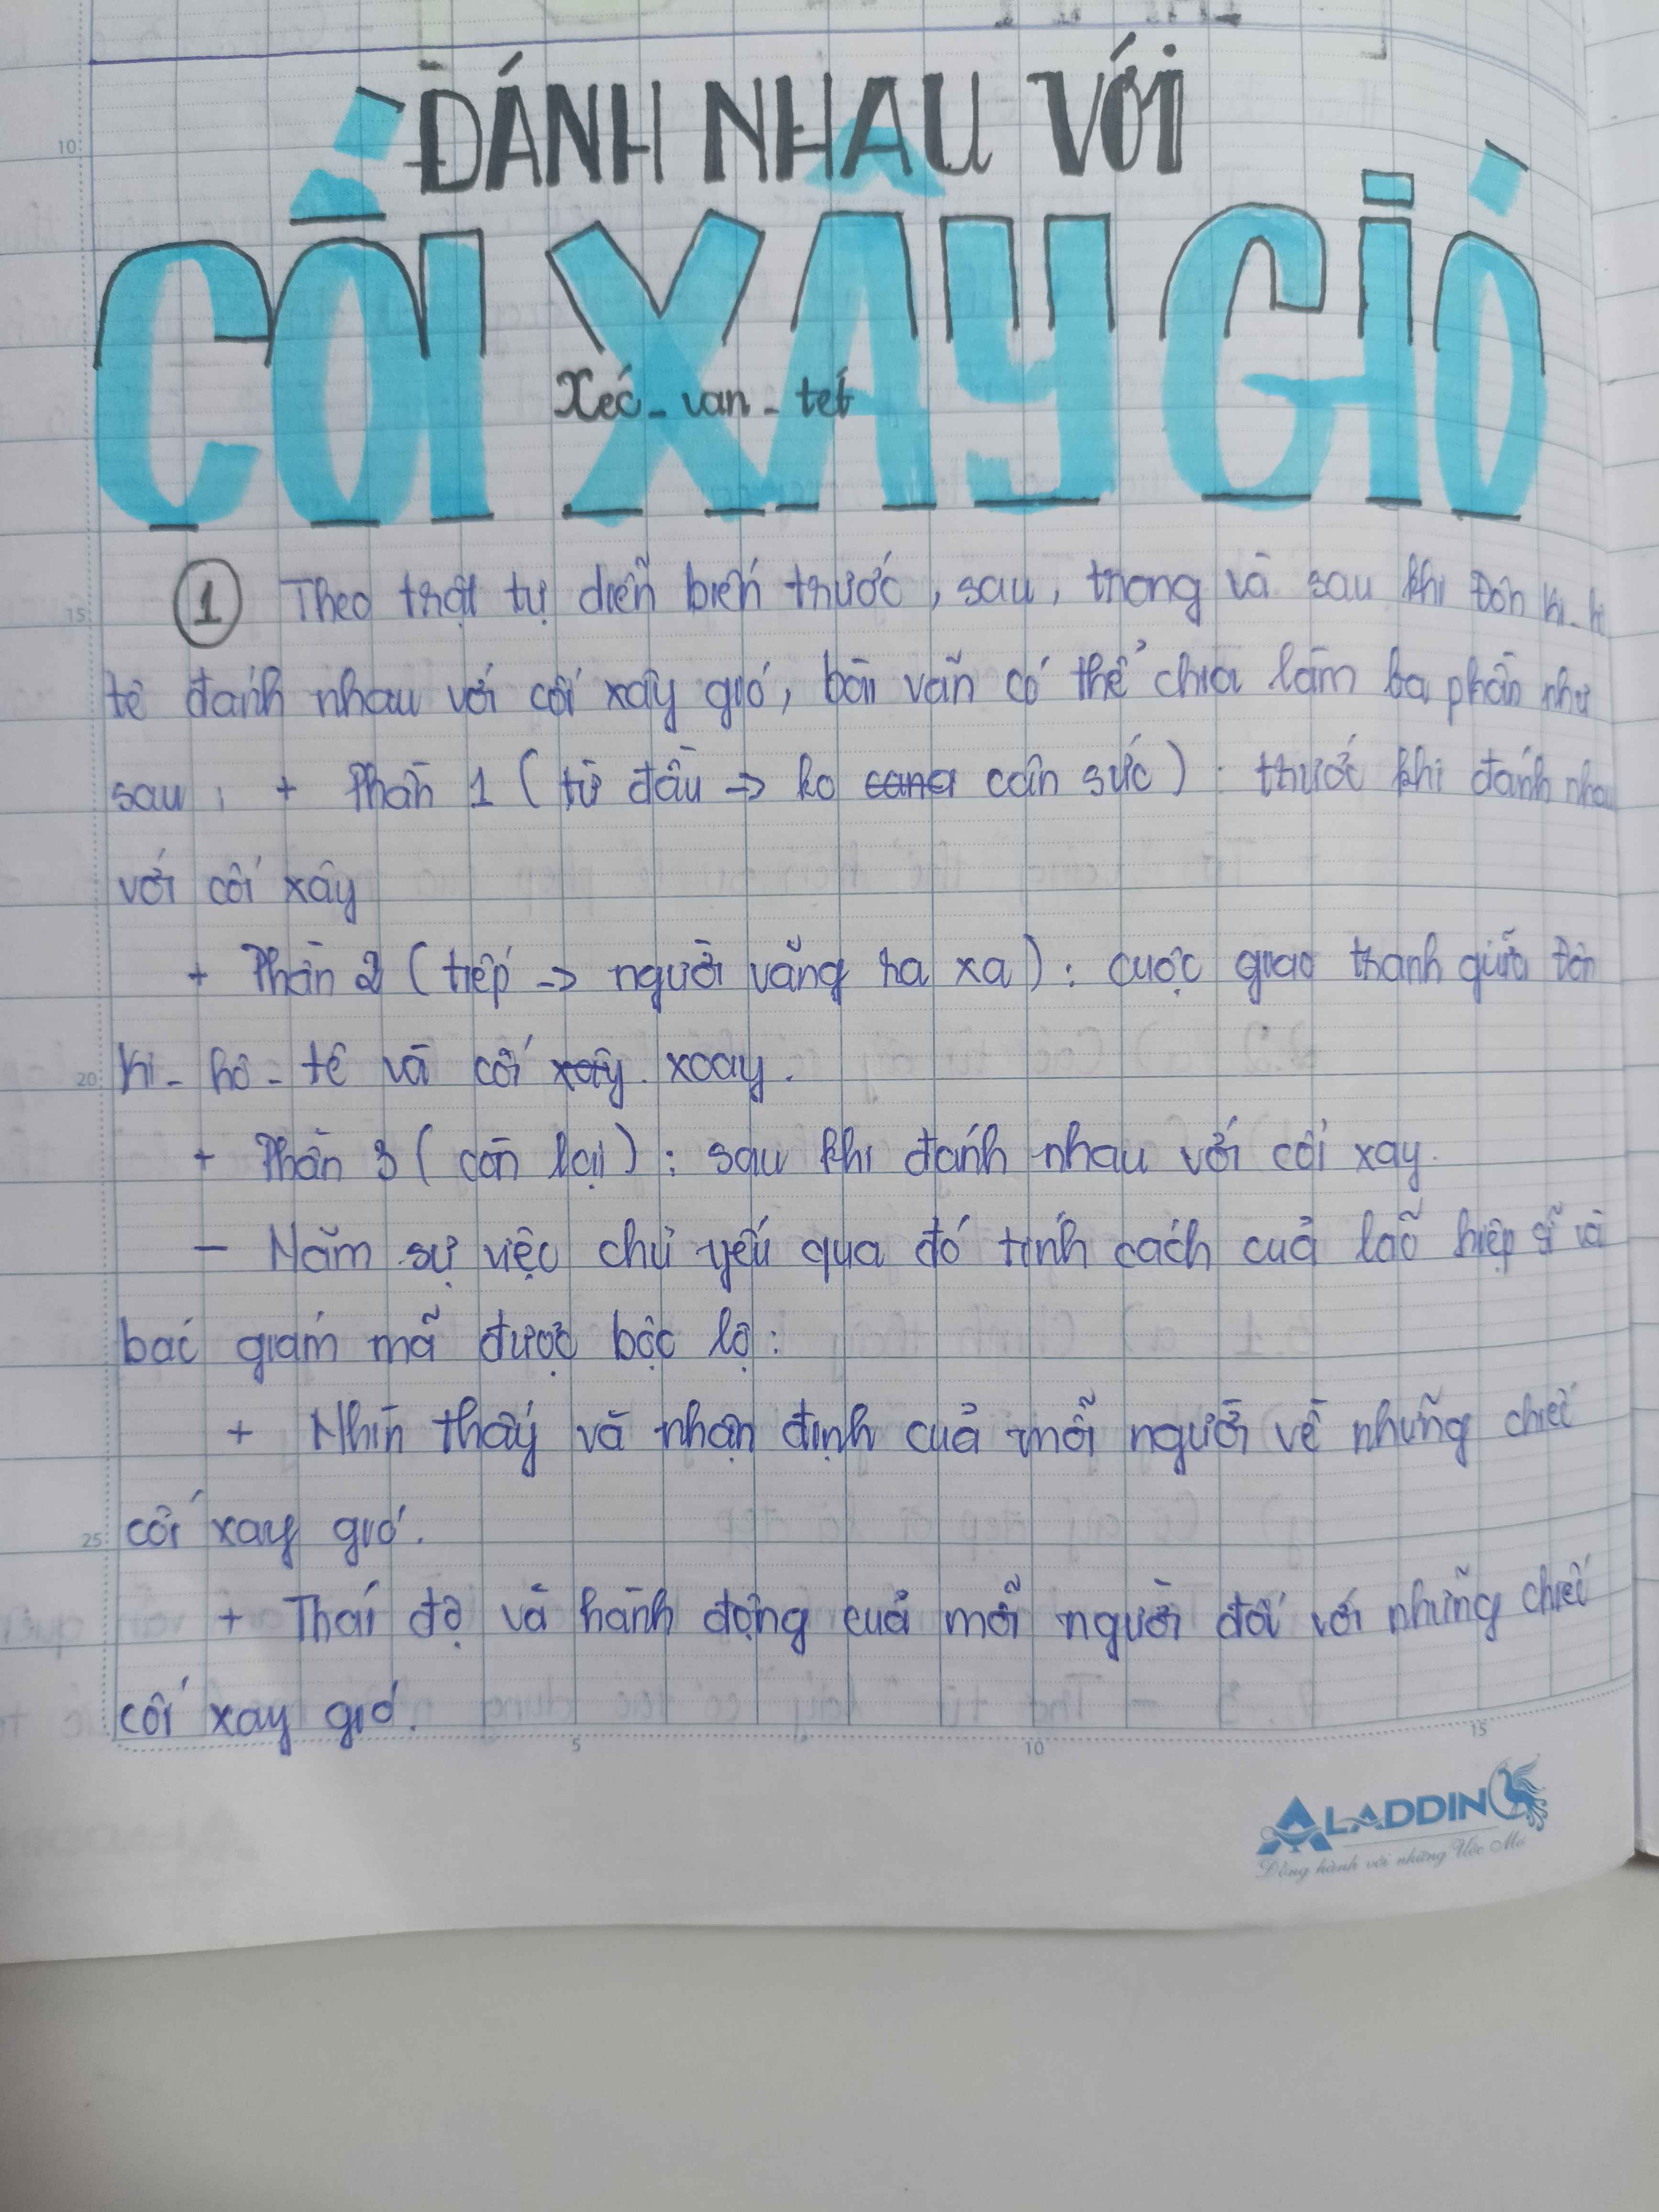 ĐÁNH NHAU VỚI
CỐI XÂY GIÓ
Xéc - van - tét
① Theo trật tự diễn biến trước, sau, trong và sau khi Đôn Ki - h
tê đánh nhau với cối xây gió, bài văn có thể chia làm ba phần như
sau : + Phần 1 ( từ đầu => ko cang cân sức ) : trước khi đánh nhau
với cối xây
+ Phần 2 ( tiếp => người văng ra xa ) : cuộc giao tranh giữa Đôn
Ki - hô - tê và cối xoay .
+ Phần 3 ( còn lại ) : sau khi đánh nhau với cối xay.
— Năm sự việc chủ yếu qua đó tính cách của lão hiệp sĩ và
bác giám mã được bộc lộ :
+ Nhìn thấy và nhận định của mỗi người về những chiếc
cối xay gió .
+ Thái độ và hành động của mỗi người đối với những chiếc
cối xay gió .
10
15
20
25
5
10
15
ALADDIN
Đồng hành với những Ước Mơ